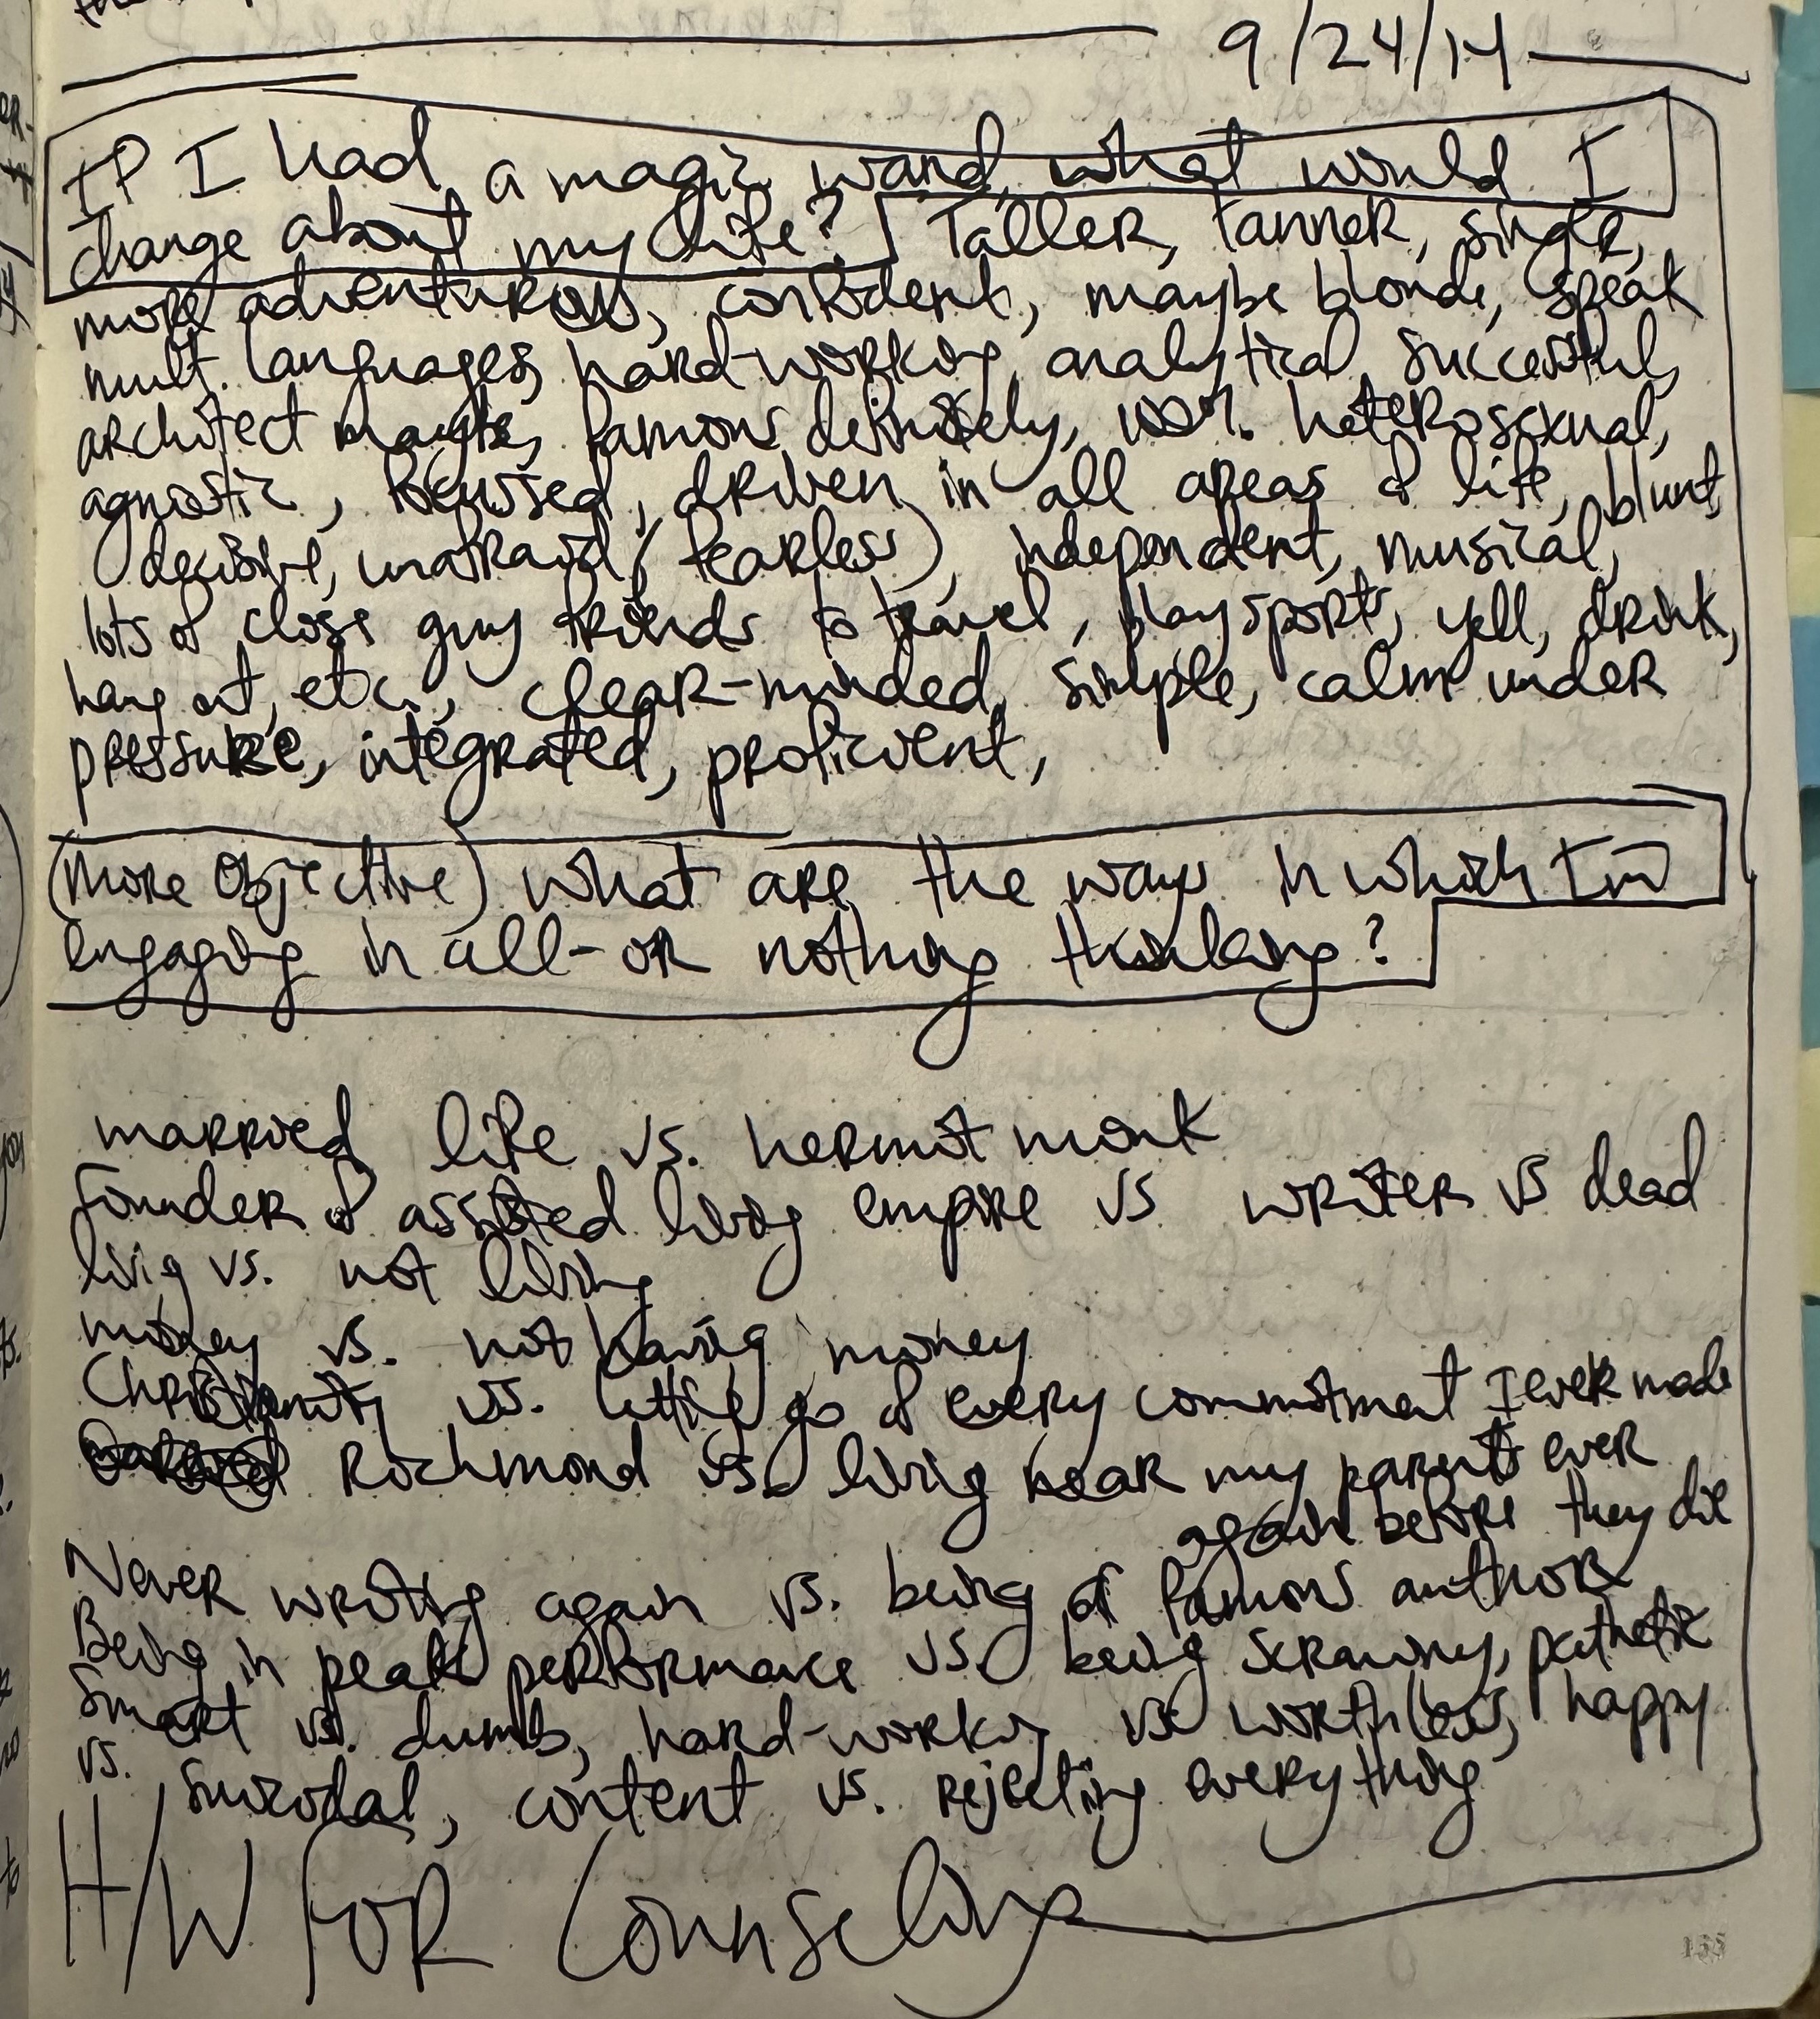 9/24/14
If I had a magic wand, what would I
change about my life? Taller, tanner, single,
more adventurous, confident, maybe blonde, speak
mult. languages, hard-working, analytical, successful,
architect maybe, famous definitely, 100% heterosexual,
agnostic, focused, driven in all areas of life, blunt
decisive, unafraid (fearless), independent, musical,
lots of close guy friends to travel, play sports, yell, drink,
hang out, etc., clear-minded, simple, calm under
pressure, integrated, proficient,
(more objective) what are the ways in which I'm
engaging in all-or nothing thinking?
married life vs. hermit monk
Founder of assisted living empire vs writer vs dead
living vs. not living
money vs. not having money
Christianity vs. letting go of every commitment I ever made
Richmond vs. living near my parents ever
again before they die
Never writing again vs. being a famous author
Being in peak performance vs. being scrawny, pathetic
Smart vs. dumb, hard-working vs worthless, happy
vs. suicidal, content vs. rejecting everything
H/W FOR Counseling
155